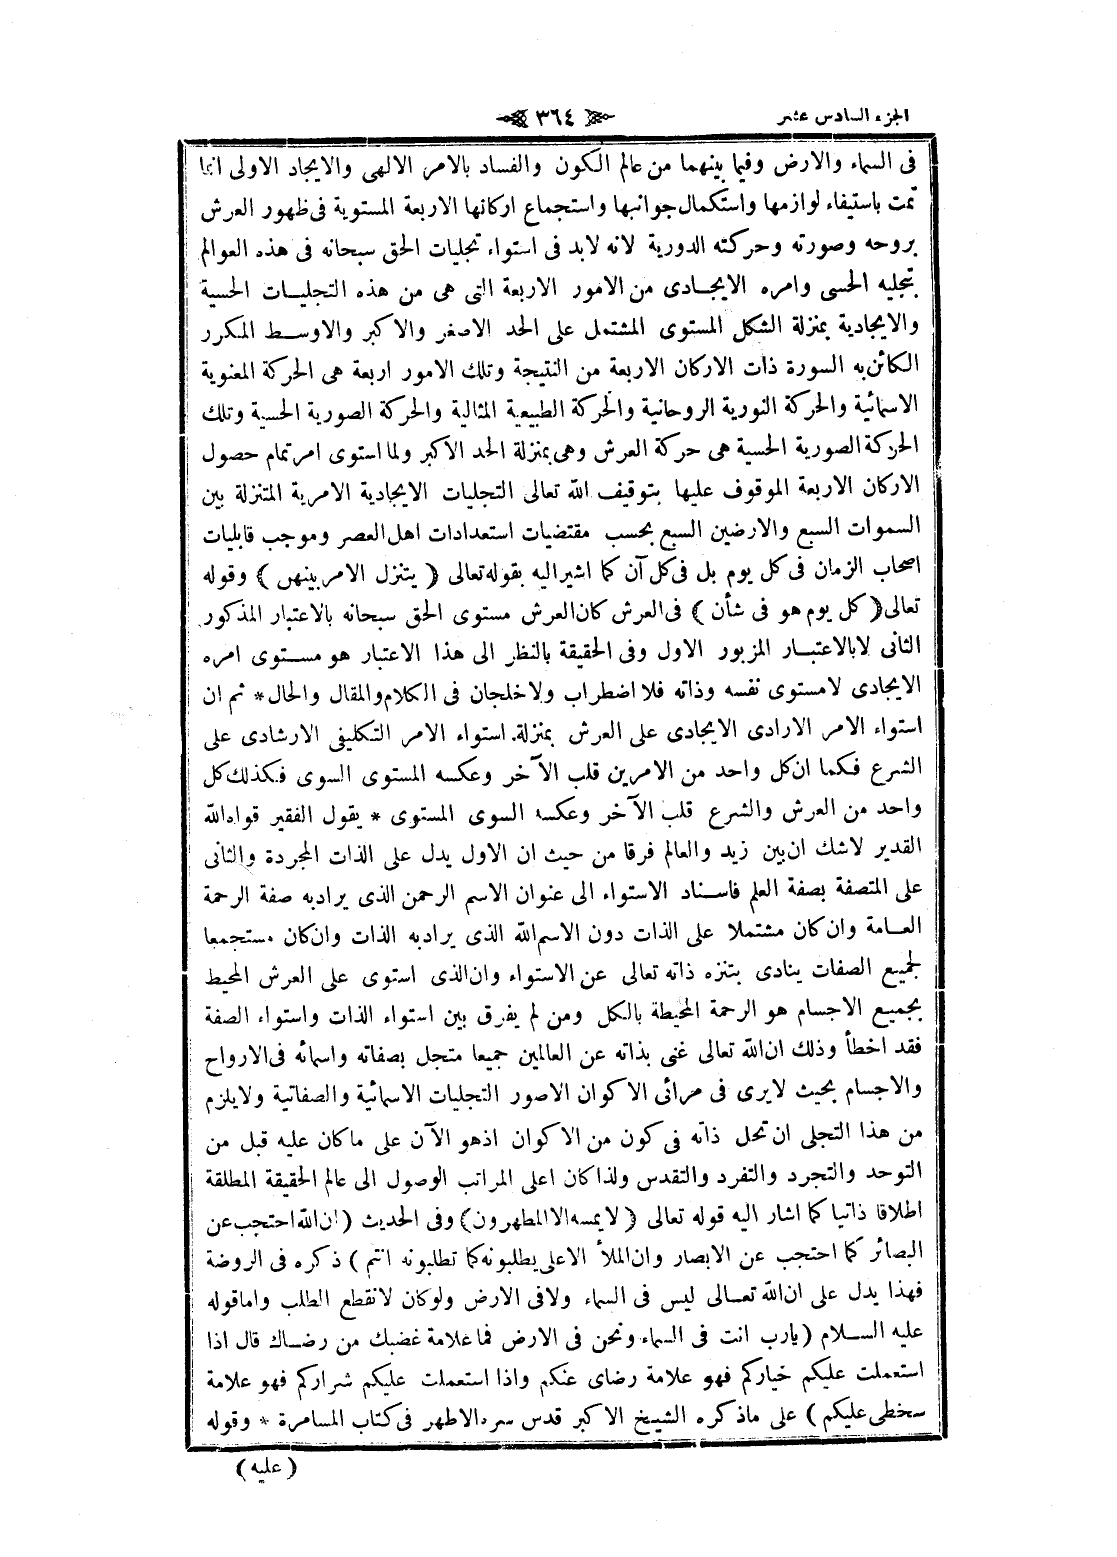 الجزء السادس عشر
٣٦٤
فى السماء والارض وفيما بينهما من عالم الكون والفساد بالامر الالهى والايجاد الاولى انما
تمت باستيفاء لوازمها واستكمال جوانبها واستجماع اركانها الاربعة المستوية فى ظهور العرش
بروحه وصورته وحركته الدورية لانه لابد فى استواء تجليات الحق سبحانه فى هذه العوالم
بتجليه الحسى وامره الايجادى من الامور الاربعة التى هى من هذه التجليات الحسية
والايجادية بمنزلة الشكل المستوى المشتمل على الحد الاصغر والاكبر والاوسط المكرر
الكائن به السورة ذات الاركان الاربعة من النتيجة وتلك الامور اربعة هى الحركة المعنوية
الاسمائية والحركة النورية الروحانية والحركة الطبيعية المثالية والحركة الصورية الحسية وتلك
الحركة الصورية الحسية هى حركة العرش وهى بمنزلة الحد الاكبر ولما استوى امر تمام حصول
الاركان الاربعة الموقوف عليها بتوقيف الله تعالى التجليات الايجادية الامرية المتنزلة بين
السموات السبع والارضين السبع بحسب مقتضيات استعدادات اهل العصر وموجب قابليات
اصحاب الزمان فى كل يوم بل فى كل آن كما اشير اليه بقوله تعالى ( يتنزل الامر بينهن ) وقوله
تعالى ( كل يوم هو فى شأن ) فى العرش كان العرش مستوى الحق سبحانه بالاعتبار المذكور
الثانى لا بالاعتبار المزبور الاول وفى الحقيقة بالنظر الى هذا الاعتبار هو مستوى امره
الايجادى لا مستوى نفسه وذاته فلا اضطراب ولا خلجان فى الكلام والمقال والحال * ثم ان
استواء الامر الارادى الايجادى على العرش بمنزلة. استواء الامر التكليفى الارشادى على
الشرع فكما ان كل واحد من الامرين قلب الآخر وعكسه المستوى السوى فكذلك كل
واحد من العرش والشرع قلب الآخر وعكسه السوى المستوى * يقول الفقير قواه الله
القدير لاشك ان بين زيد والعالم فرقا من حيث ان الاول يدل على الذات المجردة والثانى
على المتصفة بصفة العلم فاسناد الاستواء الى عنوان الاسم الرحمن الذى يراد به صفة الرحمة
العامة وان كان مشتملا على الذات دون الاسم الله الذى يراد به الذات وان كان مستجمعا
لجميع الصفات ينادى بتنزه ذاته تعالى عن الاستواء وان الذى استوى على العرش المحيط
بجميع الاجسام هو الرحمة المحيطة بالكل ومن لم يفرق بين استواء الذات واستواء الصفة
فقد اخطأ وذلك ان الله تعالى غنى بذاته عن العالمين جميعا متجل بصفاته واسمائه فى الارواح
والاجسام بحيث لا يرى فى مرائى الاكوان الا صور التجليات الاسمائية والصفاتية ولا يلزم
من هذا التجلى ان تحل ذاته فى كون من الاكوان اذ هو الآن على ما كان عليه قبل من
التوحد والتجرد والتفرد والتقدس ولذا كان اعلى المراتب الوصول الى عالم الحقيقة المطلقة
اطلاقا ذاتيا كما اشار اليه قوله تعالى ( لا يمسه الا المطهرون ) وفى الحديث ( ان الله احتجب عن
البصائر كما احتجب عن الابصار وان الملأ الاعلى يطلبونه كما تطلبونه انتم ) ذكره فى الروضة
فهذا يدل على ان الله تعالى ليس فى السماء ولا فى الارض ولو كان لانقطع الطلب واما قوله
عليه السلام ( يارب انت فى السماء ونحن فى الارض فما علامة غضبك من رضاك قال اذا
استعملت عليكم خياركم فهو علامة رضاى عنكم واذا استعملت عليكم شراركم فهو علامة
سخطى عليكم ) على ما ذكره الشيخ الاكبر قدس سره الاطهر فى كتاب المسامرة * وقوله
( عليه )